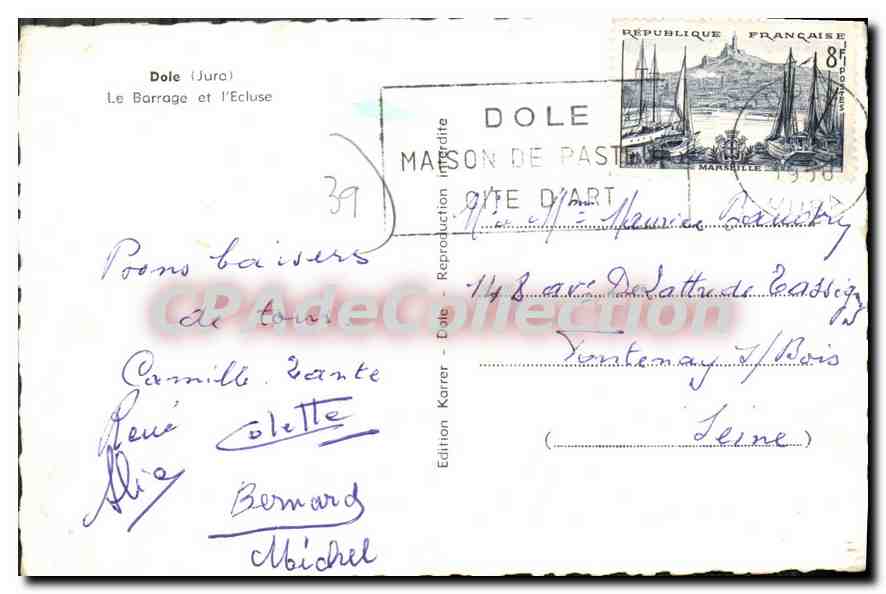 Dole (Jura)
Le Barrage et l'Ecluse
39
Bons baisers
de tous.
Camille. Tante
René
Colette
Alice
Bernard
Michel
Edition Karrer - Dole - Reproduction interdite
RÉPUBLIQUE FRANÇAISE
8F
POSTES
MARSEILLE
DOLE
MAISON DE PASTEUR
CITE D'ART
JURA
Mr et Mme Maurice
148 ave De Lattre de Tassigny
Fontenay s/Bois
(Seine)
CPAdeCollection